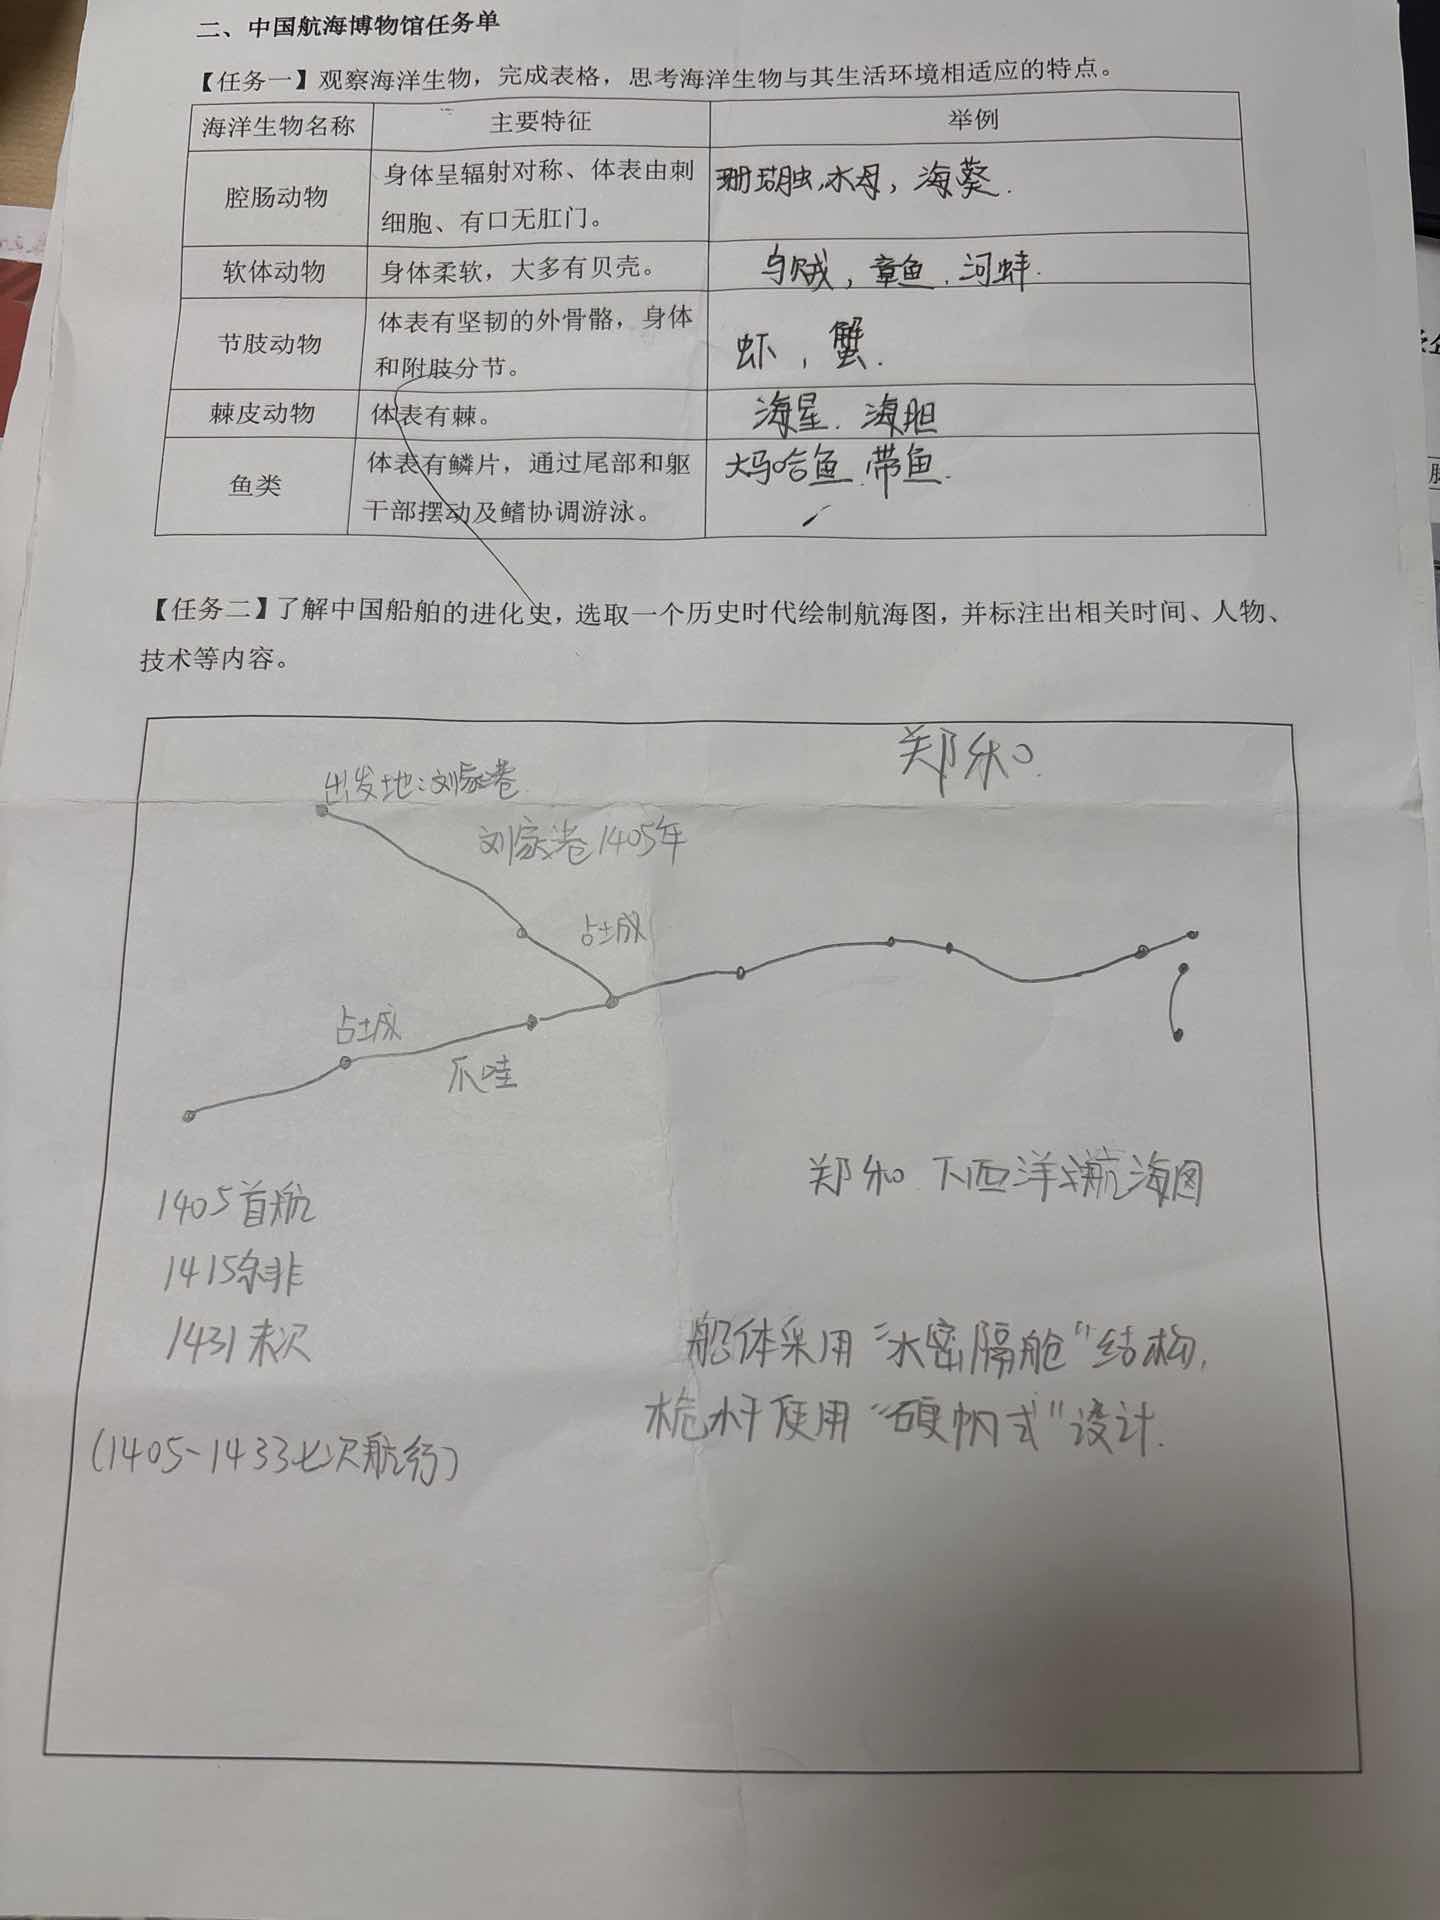 二、中国航海博物馆任务单
【任务一】观察海洋生物，完成表格，思考海洋生物与其生活环境相适应的特点。
海洋生物名称 主要特征 举例
腔肠动物 身体呈辐射对称、体表由刺细胞、有口无肛门。 珊瑚虫,水母，海葵.
软体动物 身体柔软，大多有贝壳。 乌贼，章鱼.河蚌.
节肢动物 体表有坚韧的外骨骼，身体和附肢分节。 虾，蟹.
棘皮动物 体表有棘。 海星.海胆
鱼类 体表有鳞片，通过尾部和躯干部摆动及鳍协调游泳。 大马哈鱼.带鱼.
【任务二】了解中国船舶的进化史，选取一个历史时代绘制航海图，并标注出相关时间、人物、
技术等内容。
郑和.
出发地:刘家港
刘家港1405年
占城
占城
爪哇
郑和下西洋航海图
1405首航
1415东非
1431末次
船体采用"水密隔舱"结构,
桅杆使用"硬帆式"设计.
(1405-1433七次航行)